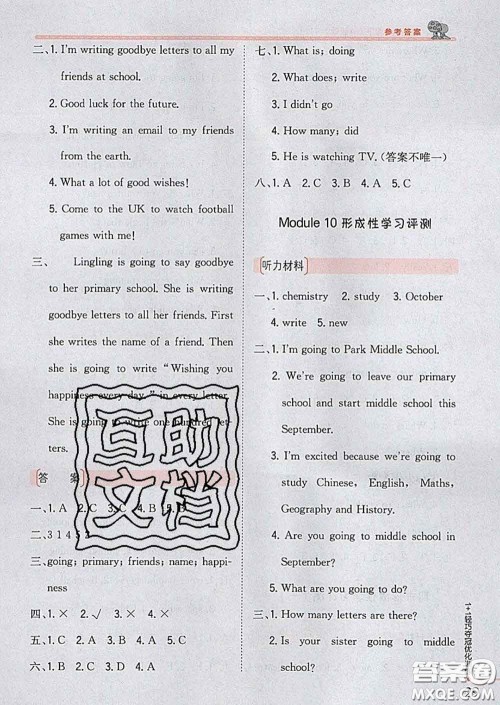 参考答案
二、1. I'm writing goodbye letters to all my
friends at school.
2. Good luck for the future.
3. I'm writing an email to my friends
from the earth.
4. What a lot of good wishes!
5. Come to the UK to watch football
games with me!
三、 Lingling is going to say goodbye
to her primary school. She is writing
goodbye letters to all her friends. First
she writes the name of a friend. Then
she is going to write "Wishing you
happiness every day" in every letter.
She is going to write one hundred let-
ters.
答 案
一、1. A 2. C
2. C
二、3 1 4 5 2
三、going; primary; friends; name; happi-
ness
四、1. × 2. √ 3. × 4. ×
五、1. C 2. C 3. B 4. A 5. C
六、1. B 2. A 3. C 4. C 5. A
七、1. What is; doing
2. What does; write
3. I didn't go
4. How many; did
5. He is watching TV. (答案不唯一)
八、1. A 2. C 3. B 4. A 5. C
Module 10 形成性学习评测
听力材料
一、1. chemistry 2. study 3. October
4. write 5. new
二、1. I'm going to Park Middle School.
2. We're going to leave our primary
school and start middle school this
September.
3. I'm excited because we're going to
study Chinese, English, Maths,
Geography and History.
4. I'm going to middle school in
September.
5. What are you going to do?
三、1. How many letters are there?
2. Is your sister going to middle
school?
3. What are you going to study?
1+1轻巧夺冠优化
互助
文档
答案圈
MXQE.COM